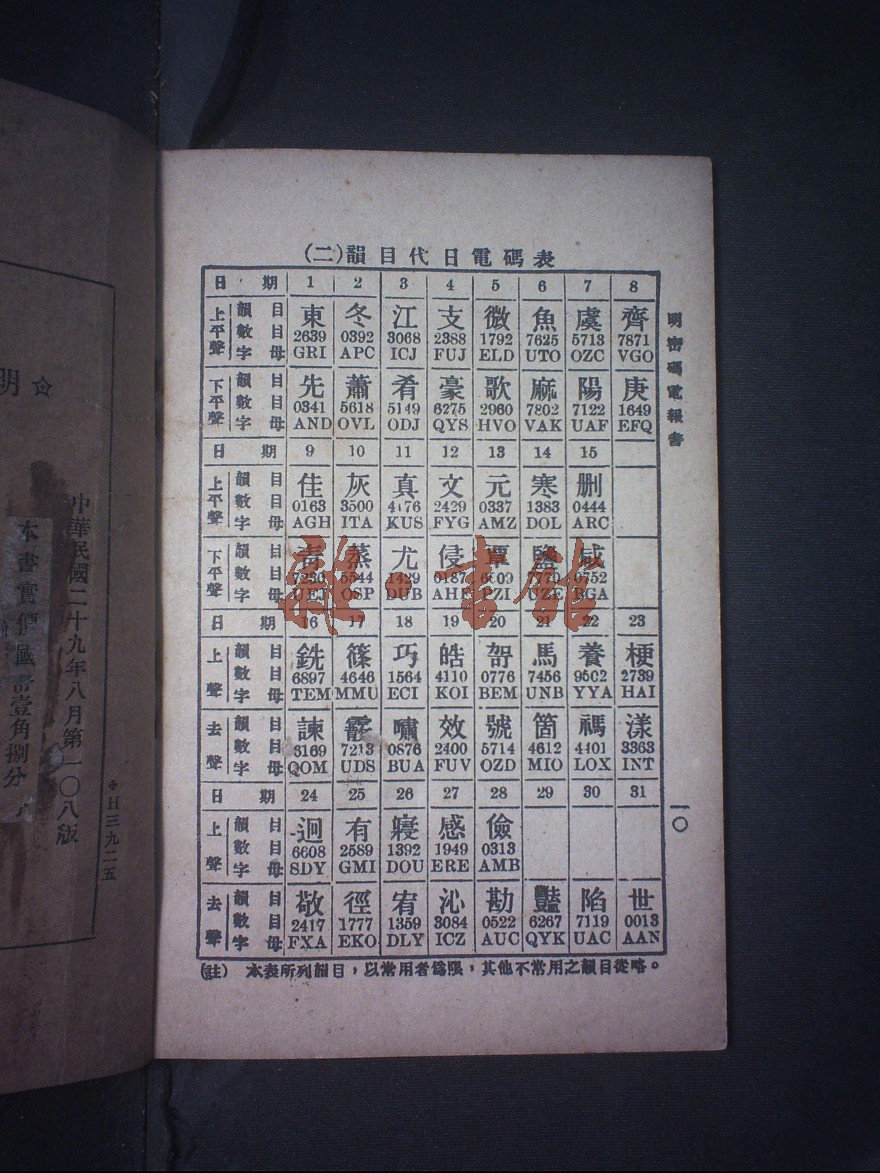 (二)韻目代日電碼表
日期 1 2 3 4 5 6 7 8
上平聲 韻目 東 冬 江 支 微 魚 虞 齊
數目 2639 0392 3068 2388 1792 7625 5713 7871
字母 GRI APC ICJ FUJ ELD UTO OZC VGO
下平聲 韻目 先 蕭 肴 豪 歌 麻 陽 庚
數目 0341 5618 5149 6275 2960 7802 7122 1649
字母 AND OVL ODJ QYS HVO VAK UAF EFQ
日期 9 10 11 12 13 14 15
上平聲 韻目 佳 灰 真 文 元 寒 刪
數目 0163 3500 4176 2429 0337 1383 0444
字母 AGH ITA KUS FYG AMZ DOL ARC
下平聲 韻目 青 蒸 尤 侵 覃 鹽 咸
數目 5544 1429 0187
字母 UEJ OSP DUB AHF UZE BGA
日期 16 17 18 19 20 21 22 23
上聲 韻目 銑 篠 巧 皓 哿 馬 養 梗
數目 6897 4646 1564 4110 0776 7456 9502 2739
字母 TEM MMU ECI KOI BEM UNB YYA HAI
去聲 韻目 諫 霰 嘯 效 號 箇 禡 漾
數目 6169 7213 0876 2400 5714 4612 4401 3363
字母 QOM UDS BUA FUV OZD MIO LOX INT
日期 24 25 26 27 28 29 30 31
上聲 韻目 迥 有 寢 感 儉
數目 6608 2589 1392 1949 0313
字母 SDY GMI DOU ERE AMB
去聲 韻目 敬 徑 宥 沁 勘 豔 陷 世
數目 2417 1777 1359 3084 0522 6267 7119 0013
字母 FXA EKO DLY ICZ AUC QYK UAC AAN
(註) 本表所列韻目，以常用者爲限，其他不常用之韻目從略。
明密碼電報書
一〇
雜·書館
明
中華民國二十九年八月第一〇八版
本書實價國幣壹角捌分
日三九二五